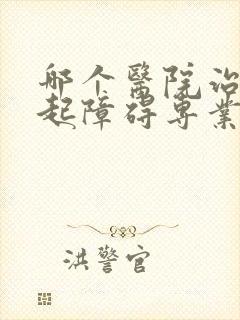 那个醫院治
起障碍専業
洪警官